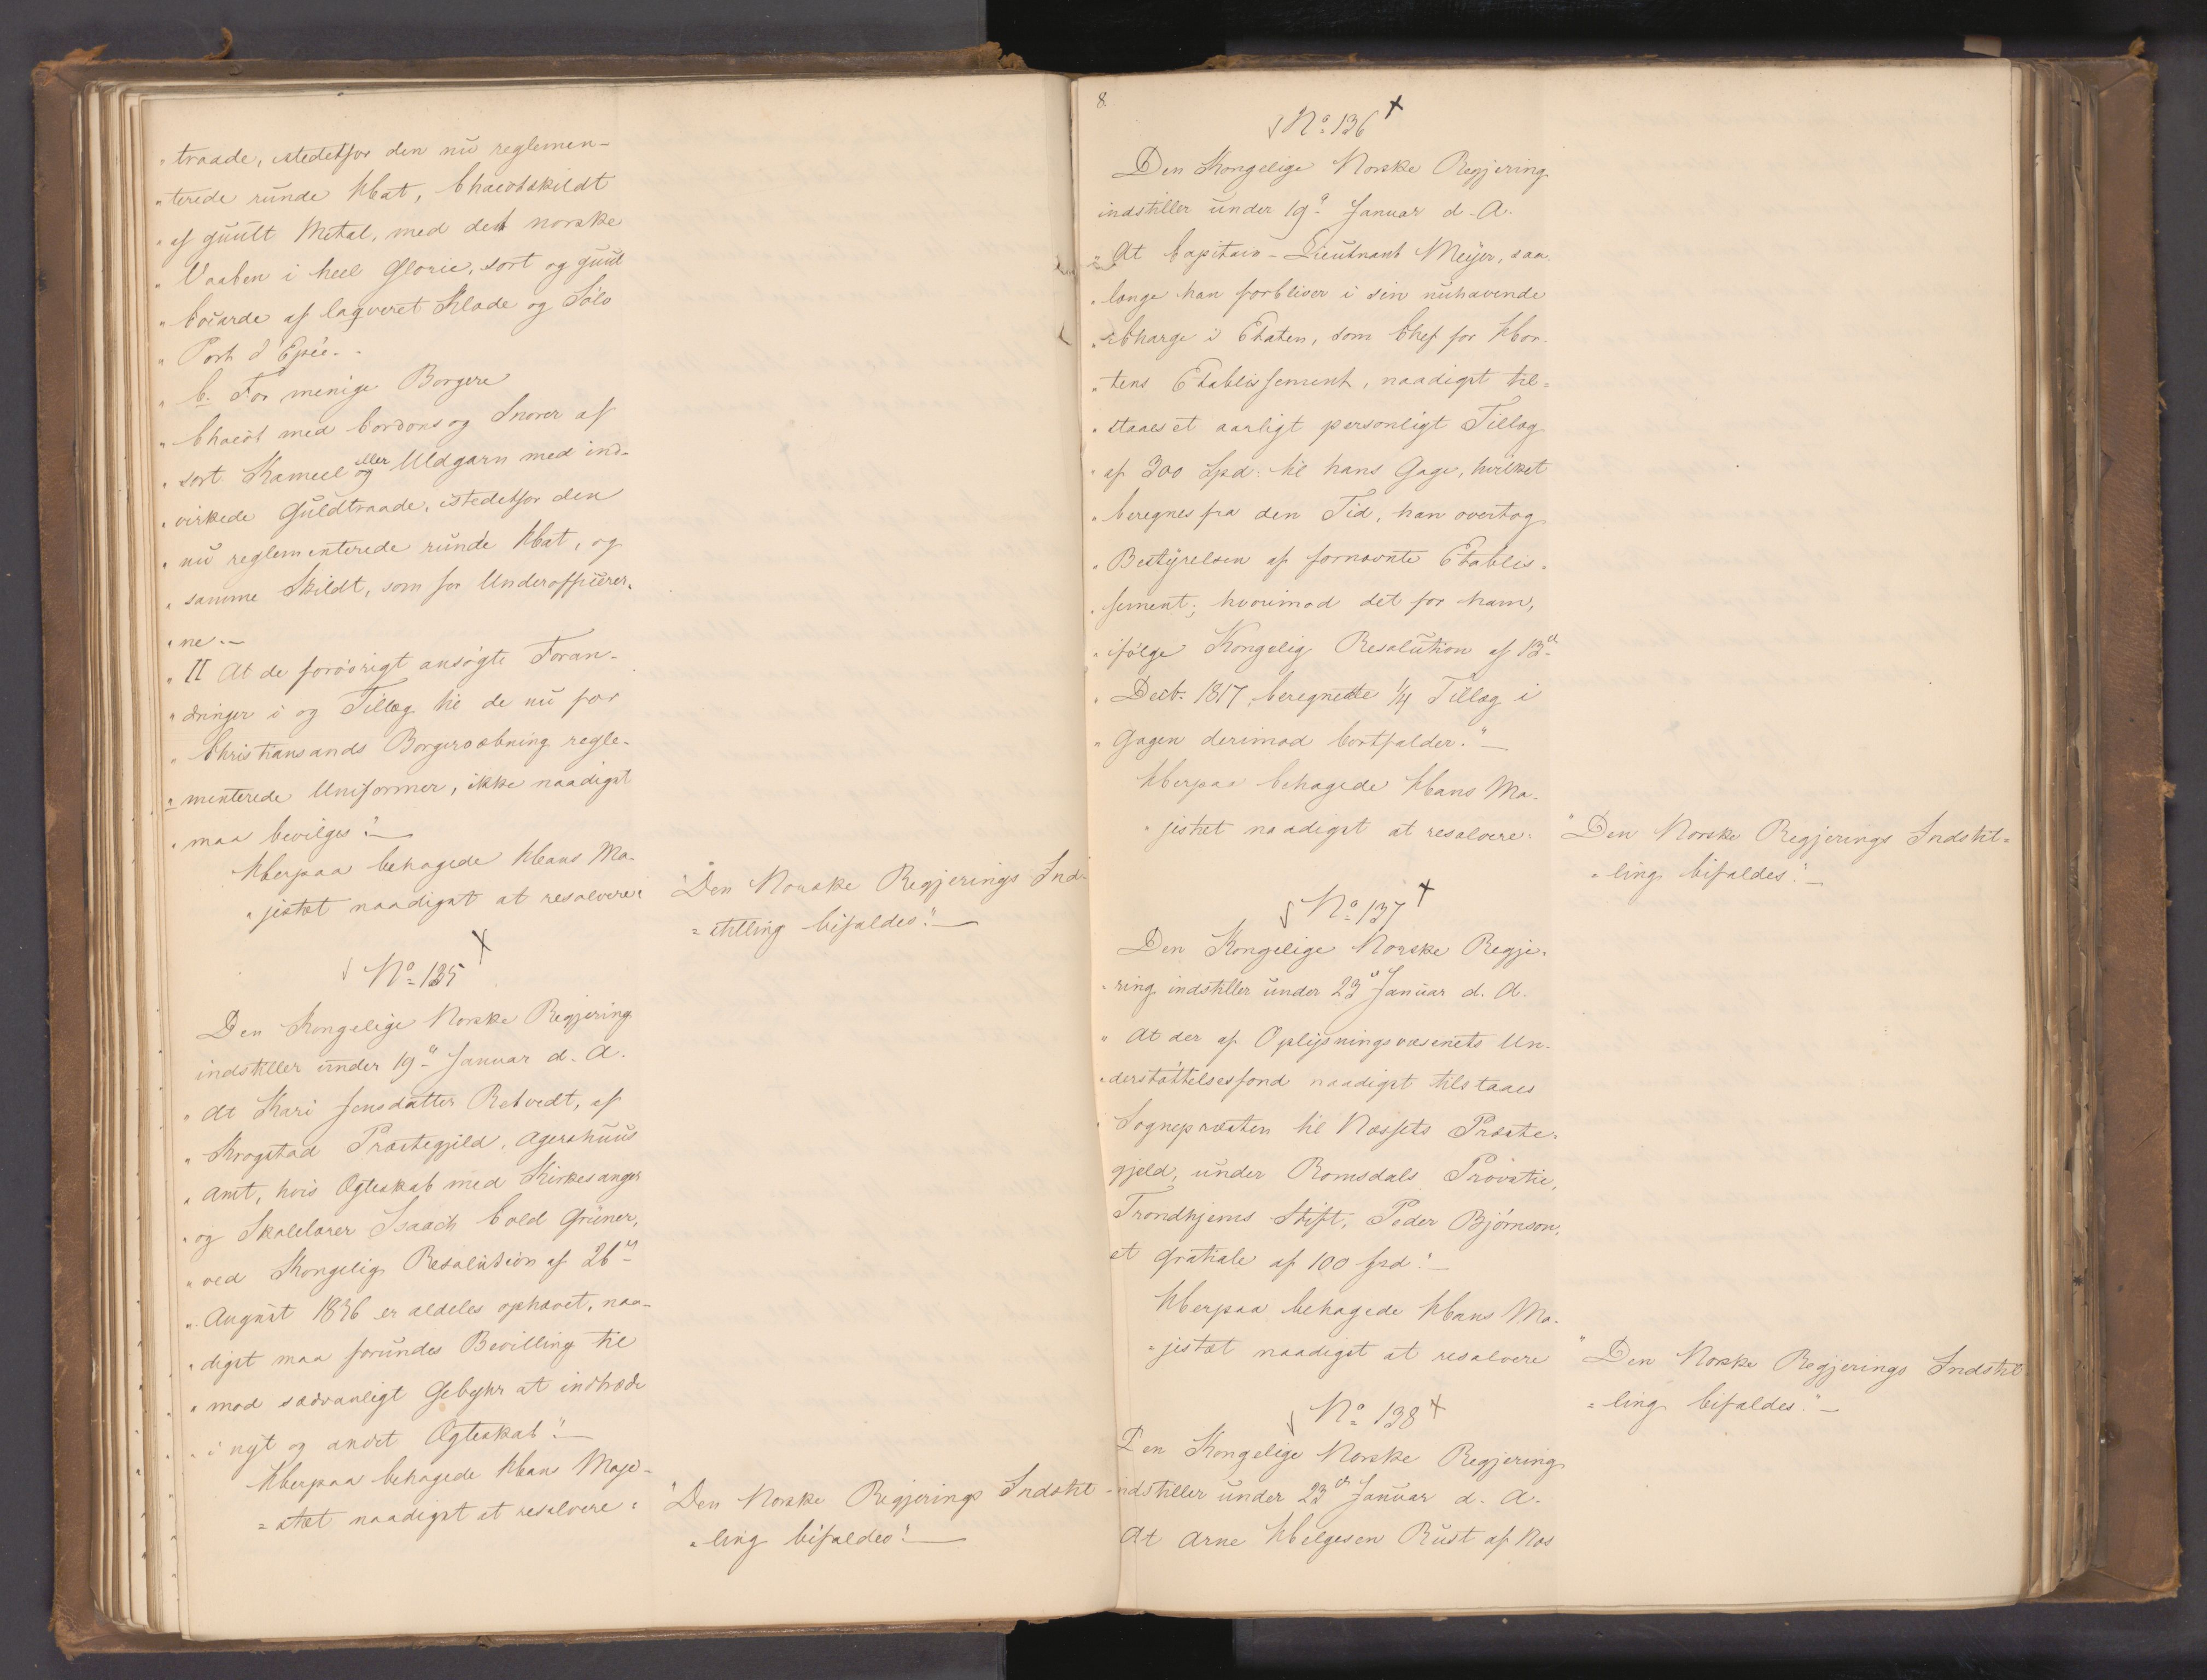 "traade, istedetfor den nu reglemen-
"terede runde Hat, Chacotskildt
"af guult Metal, med det norske
"Vaaben i heel Glorie, sort og guul
"Cocarde af laqveret Klæde og Sölv
"Port d'Epée.-
"C. For menige Borgere
"Chacot med Cordons og Snorer af
"sort Kameel eller Uldgarn med ind-
"virkede Guldtraade, istedetfor den
"nu reglementerede runde Hat, og
"samme Skildt, som for Underofficerer-
"ne.-
"II At de forövrigt ansögte Foran-
"dringer i og Tillæg til de nu for
"Christiansands Borgervæbning regle-
"menterede Uniformer, ikke naadigst
"maa bevilges."-
Herpaa behagede Hans Ma-
"jestæt naadigst at resolvere:
"Den Norske Regjerings Ind-
=stilling bifaldes."-
No 135 X
Den Kongelige Norske Regjering
indstiller under 19de Januar d. A.
"At Kari Jensdatter Retvedt, af
"Krogstad Præstegjeld, Agershuus
"Amt, hvis Ægteskab med Kirkesanger
"og Skolelærer Isaach Cold Grüner,
"ved Kongelig Resolution af 26de
"August 1836 er aldeles ophævet, naa-
"digst maa forundes Bevilling til
"mod sædvanligt Gebyhr at indtræde
"i nyt og andet Ægteskab."-
Herpaa behagede Hans Maje-
=stæt naadigst at resolvere:
"Den Norske Regjerings Indstil-
"ling bifaldes."-
8
No 136 X
Den Kongelige Norske Regjering
indstiller under 19de Januar d. A.
"At Capitain-Lieutnant Meyer, saa
"længe han forbliver i sin nuhavende
"Charge i Etaten, som Chef for Hor-
"tens Etablissement, naadigst til-
"staaes et aarligt personligt Tillæg
"af 300 Spd. til hans Gage, hvilket
"beregnes fra den Tid, han overtog
"Bestyrelsen af fornævnte Etablis-
"sement; hvorimod det for ham,
"ifølge Kongelig Resolution af 13de
"Decbr. 1817, beregnede 1/4 Tillæg i
"Gagen derimod bortfalder."-
Herpaa behagede Hans Ma-
"jestæt naadigst at resolvere:
"Den Norske Regjerings Indstil=
"ling bifaldes."-
No 137 X
Den Kongelige Norske Regje-
"ring indstiller under 23de Januar d. A.
"At der af Oplysningsvæsenets Un-
"derstöttelsesfond naadigst tilstaaes
"Sognepræsten til Næssets Præste-
gjeld, under Romsdals Provstie,
Trondhjems Stift, Peder Bjørnson,
et Gratiale af 100 Spd."-
Herpaa behagede Hans Ma-
=jestæt naadigst at resolvere
"Den Norske Regjerings Indstil
=ling bifaldes."-
No 138 X
Den Kongelige Norske Regjering
indstiller under 23de Januar d. A.
At Arne Helgesen Rust af Næs